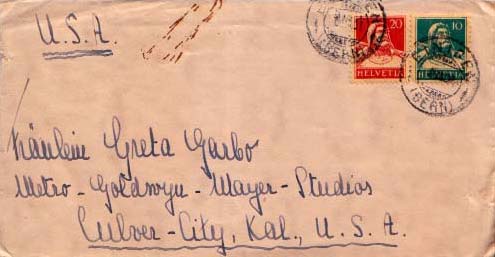 U.S.A.
20 10
HELVETIA HELVETIA
(BERN)
Fräulein Greta Garbo
Metro-Goldwyn-Mayer-Studios
Culver-City, Kal., U.S.A.